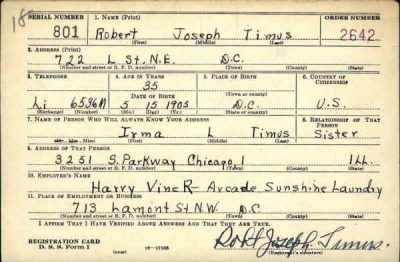 18
SERIAL NUMBER 1. NAME (Print) ORDER NUMBER
801 Robert Joseph Timus 2642
(First) (Middle) (Last)
2. ADDRESS (Print)
722 L St. N.E. D.C.
(Number and street or R. F. D. number) (Town) (County) (State)
3. TELEPHONE 4. AGE IN YEARS 5. PLACE OF BIRTH 6. COUNTRY OF CITIZENSHIP
35
DATE OF BIRTH
Li 6536M 5 15 1905 D.C. U.S.
(Exchange) (Number) (Mo.) (Day) (Yr.) (State or country)
7. NAME OF PERSON WHO WILL ALWAYS KNOW YOUR ADDRESS 8. RELATIONSHIP OF THAT PERSON
Irma L Timus Sister
(Mr., Mrs., Miss) (First) (Middle) (Last)
9. ADDRESS OF THAT PERSON
3251 S. Parkway Chicago, ILL.
(Number and street or R. F. D. number) (Town) (County) (State)
10. EMPLOYER'S NAME
Harry Viner - Arcade Sunshine Laundry
11. PLACE OF EMPLOYMENT OR BUSINESS
713 Lamont St N.W. D.C.
(Number and street or R. F. D. number) (Town) (County) (State)
I AFFIRM THAT I HAVE VERIFIED ABOVE ANSWERS AND THAT THEY ARE TRUE.
REGISTRATION CARD
D. S. S. Form 1 (over) 16-17105 Robt Joseph Timus.
(Registrant's signature)